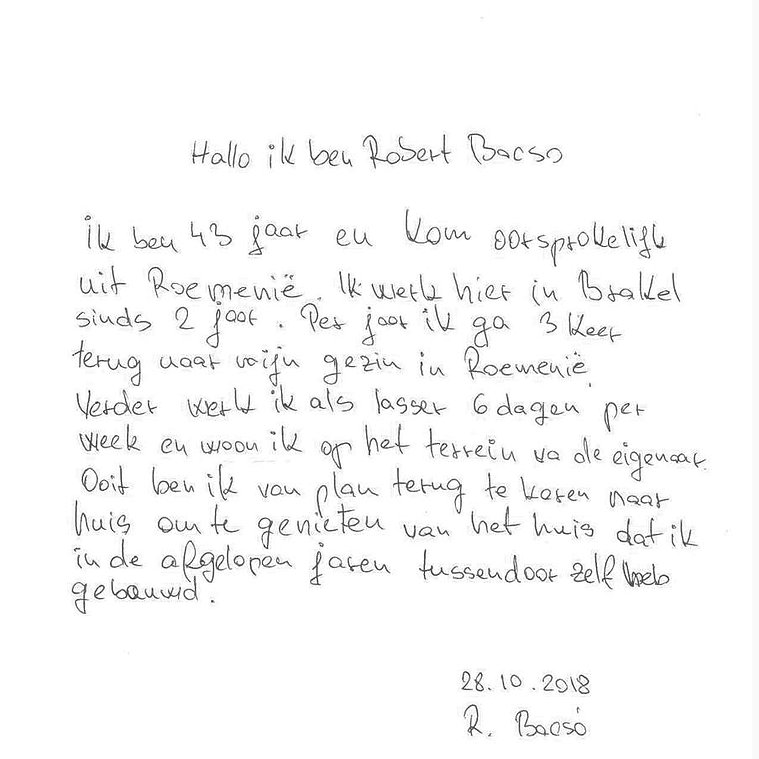 Hallo ik ben Robert Bacso
ik ben 43 jaar en kom oorsprokelijk
uit Roemenië. Ik werk hier in Brakel
sinds 2 jaar. Per jaar ik ga 3 keer
terug naar mijn gezin in Roemenië.
Verder werk ik als lasser 6 dagen per
week en woon ik op het terrein va de eigenaar.
Ooit ben ik van plan terug te keren naar
huis om te genieten van het huis dat ik
in de afgelopen jaren tussendoor zelf heb
gebouwd.
28.10.2018
R. Bacsó